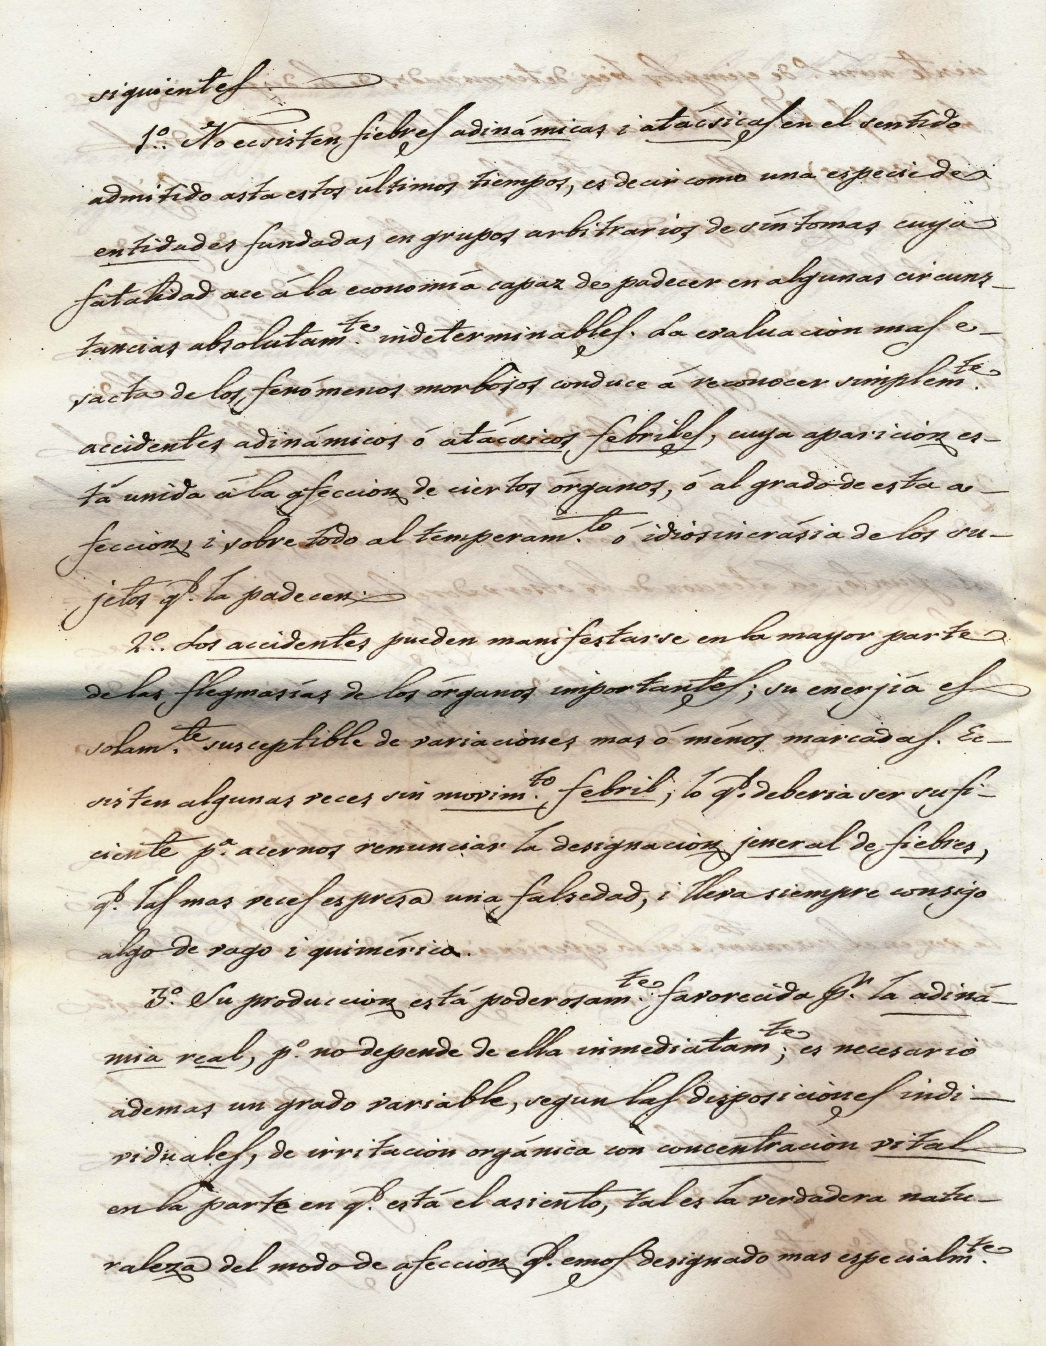 siguientes:
1º. No ecsisten fiebres adinámicas i atácsicas en el sentido
admitido asta estos últimos tiempos, es decir como una especie de
entidades fundadas en grupos arbitrarios de síntomas cuya
fatalidad ace á la economiá capaz de padecer en algunas circuns-
tancias absolutam.te indeterminables. La evaluacion mas e-
sacta de los fenómenos morbósos conduce á reconocer simplem.te
accidentes adinámicos ó atácsicos febriles, cuya aparicion es-
tá unida á la afeccion de ciertos órganos, ó al grado de esta a-
feccion, i sobre todo al temperam.to ó idiosincrásia de los su-
jetos q.e la padecen.
2º. Los accidentes pueden manifestarse en la mayor parte
de las flegmasías de los órganos importantes; su enerjía es
solam.te susceptible de variaciones mas ó ménos marcadas. Ec-
sisten algunas veces sin movim.to febril; lo q.e deberia ser sufi-
ciente p.a acernos renunciar la designacion jeneral de fiebres,
q.e las mas veces espresa una falsedad, i lleva siempre consigo
algo de vago i quimérico.
3º. Su produccion está poderosam.te favorecida p.r la adiná-
mia real, p.o no depende de ella inmediatam.te; es necesario
ademas un grado variable, segun las disposiciones indi-
viduales, de irritacion orgánica con concentracion vital
en la parte en q.e está el asiento, tal es la verdadera natu-
raleza del modo de afeccion q.e emos designado mas especialm.te